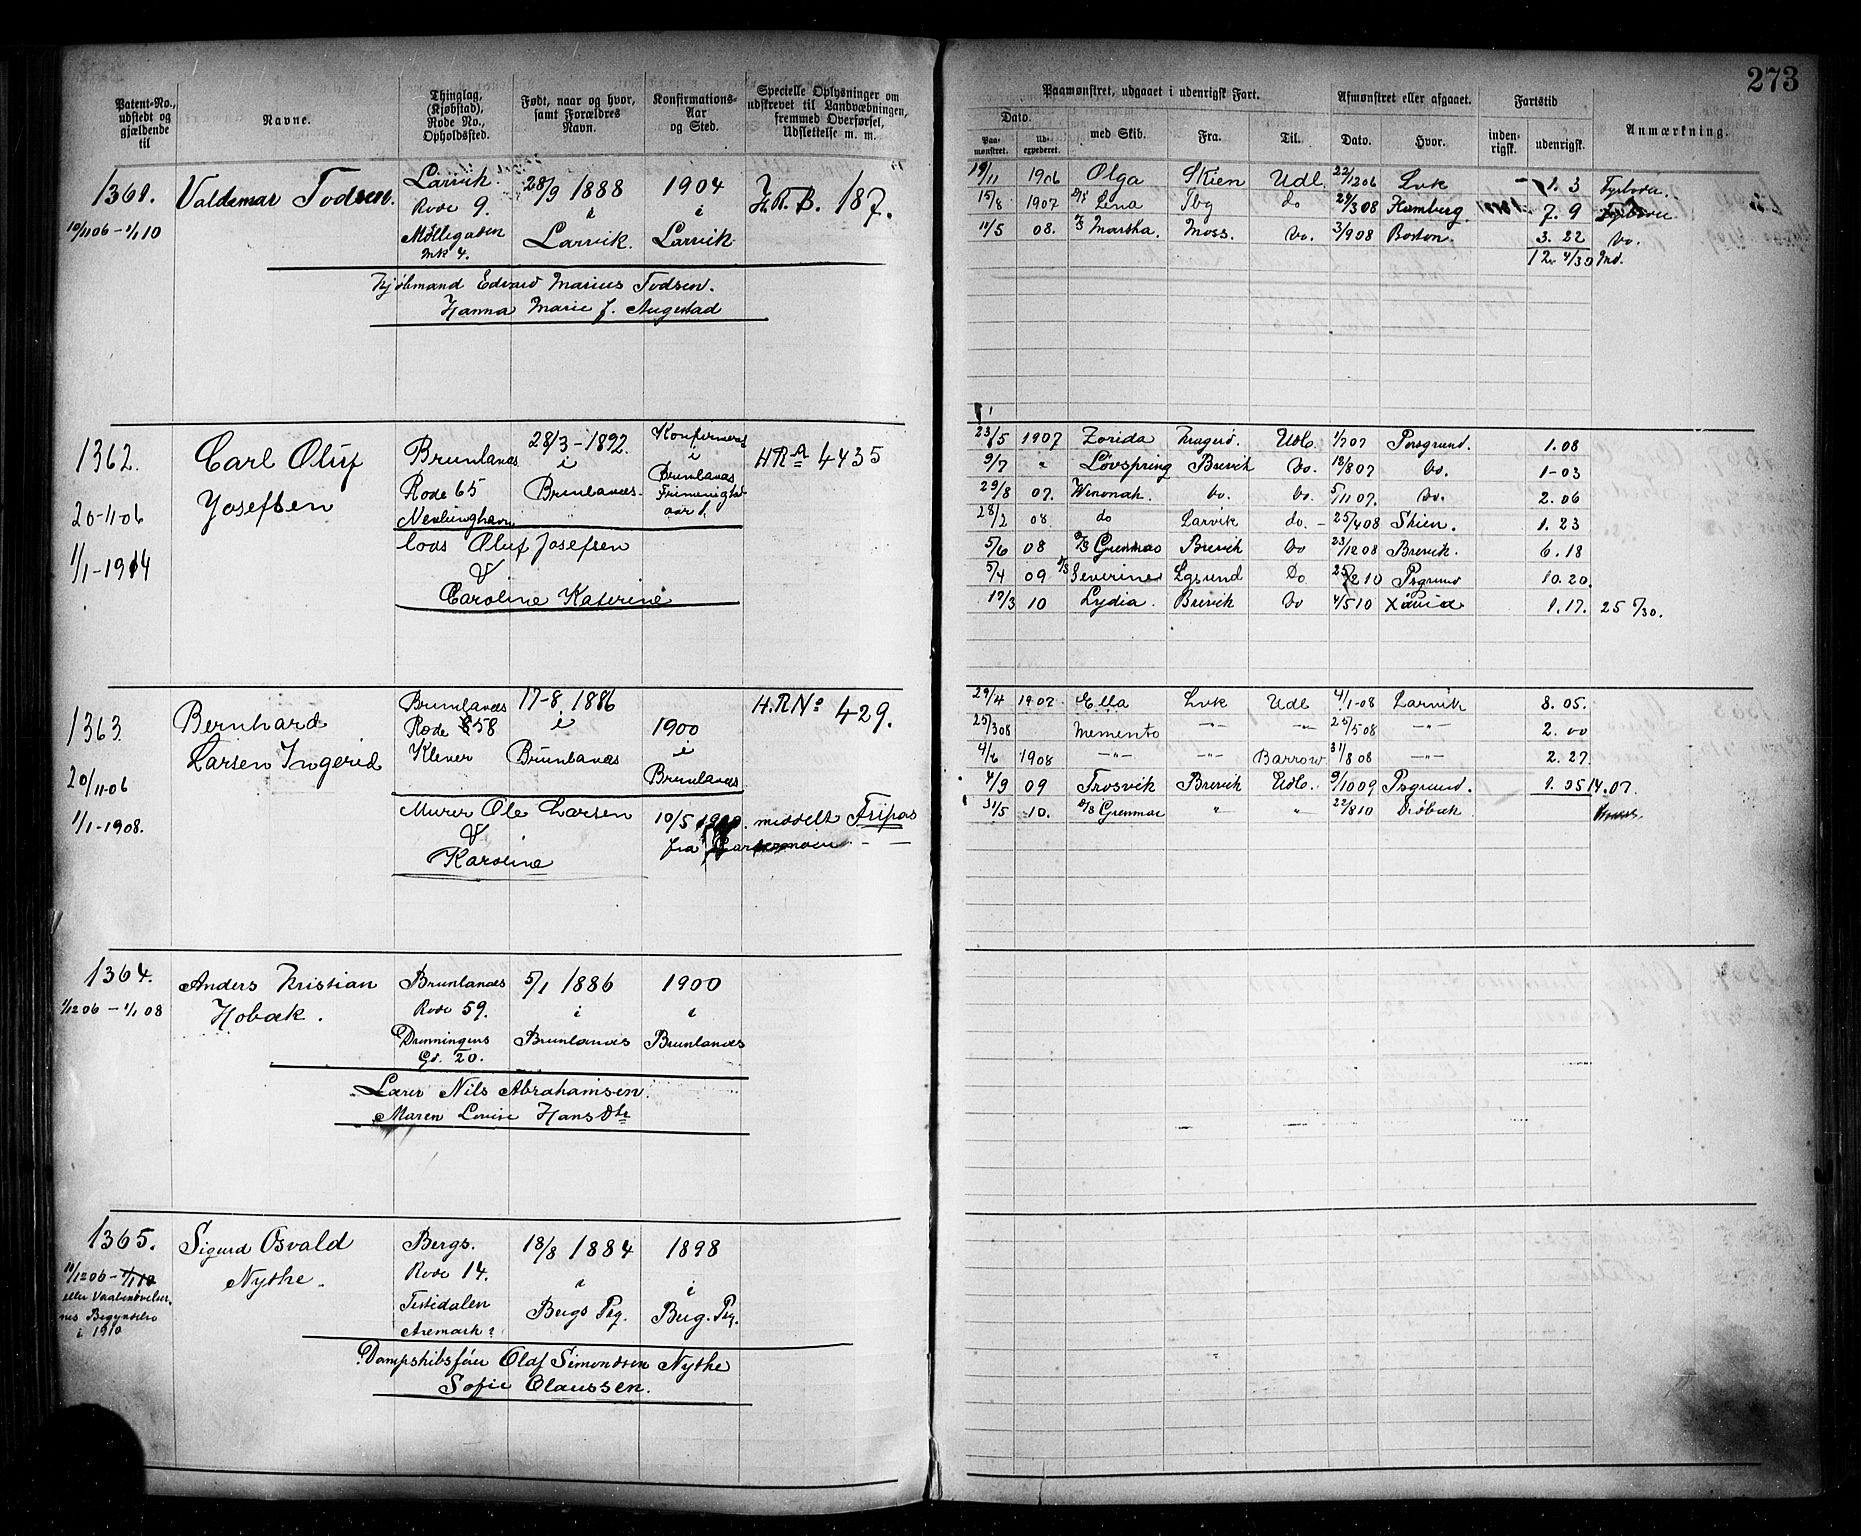 273
Patent-No., udstedt og gjældende til
Navne.
Thinglag, (Kjøbstad), Rode No., Opholdssted.
Født, naar og hvor, samt Forældres Navn.
Konfirmations-Aar og Sted.
Specielle Oplysninger om udskrevet til Landværbningen, fremmed Overførsel, Udslettelse m. m.
Paamønstret, udgaaet i udenrigsk Fart.
Dato.
Paa-mønstret.
Ud-expederet.
med Skib.
Fra.
Til.
Afmønstret eller afgaaet.
Dato.
Hvor.
Fartstid
inden-rigsk.
udenrigsk.
Anmærkning.
1361.
10/11 06 - 1/1 10
Valdemar Todsen.
Larvik.
Rode 9.
Møllegaden
mk 4.
28/9 1888
i
Larvik.
1904
i
Larvik
187.
Kjøbmand Edvard Marius Todsen.
Hanna Marie f. Augestad
19/11 1906 Olga Skien Udl. 22/12 06 Lvk 1. 3 Fyrbøder
15/8 1907 Lena Tbg do 24/3 08 Hamberg. 7. 9
11/5 08. Martha. Moss. Do. 3/9 08 Boston. 3. 22 Do.
12. 4/30 Md.
1362.
20-11-06
1/1-1914
Carl Oluf
Josefsen
Brunlanæs
Rode 65
Nevlunghavn
28/3-1892.
i
Brunlanæs.
i
Brunlanæs
4435
Lods Oluf Josefsen
&
Caroline Katerine
23/5 1907 Zorida Kragerø. Udl. 1/7 07 Porsgrund. 1.08
9/7 " Løvspring Brevik Do. 18/8 07 Do. 1-03
29/8 07. Winonah. Do. Do. 5/11 07. Do. 2.06
28/2 08 do Larvik do. - 25/4 08 Skien. 1.23
5/6 08 Grenmar Brevik Do 23/12 08 Brevik. 6.18
5/4 09 Severine Do Psgrund 10.20.
17/3 10 Lydia. Brevik Do 4/5 10 1.17. 25 5/30.
1363
20/11-06
1/1-1908.
Bernhard
Larsen Ingerid
Brunlanæs
Rode 58
Klever
17-8 1886
i
Brunlanæs
1900
i
Brunlanæs
H.R No 429.
Murer Ole Larsen
&
Karoline
10/5 middelt Fripas
fra
29/4 1907 Ella Lvk Udl 4/1-08 Larvik 8.05.
25/3 08 Memento -"- -"- 25/5 08 -"- 2.00
4/6 1908 -"- -"- Barrow 31/8 08 -"- 2.27.
4/9 09 Trosvik Brevik Udl. 9/10 09 Psgrund. 1.05 14.07.
31/5 10. Grenmar " " 22/8 10 Drøbak
1364.
1/12 06 - 1/1 08
Anders Kristian
Hobæk.
Brunlanæs
Rode 59.
Gd. 20.
5/1 1886
i
Brunlanæs
1900
i
Brunlanæs
Lærer Nils Abrahamsen.
Maren Lovise Hansdtr
1365.
i 1910
Sigurd Osvald
Nythe.
Bergs.
Rode 14.
Tistedalen
Aremark?
18/8 1884
i
Bergs Pg.
1898
i
Berg. Pg.
Dampskibsfører Olaf Simondsen Nythe
Sofie Olaussen.